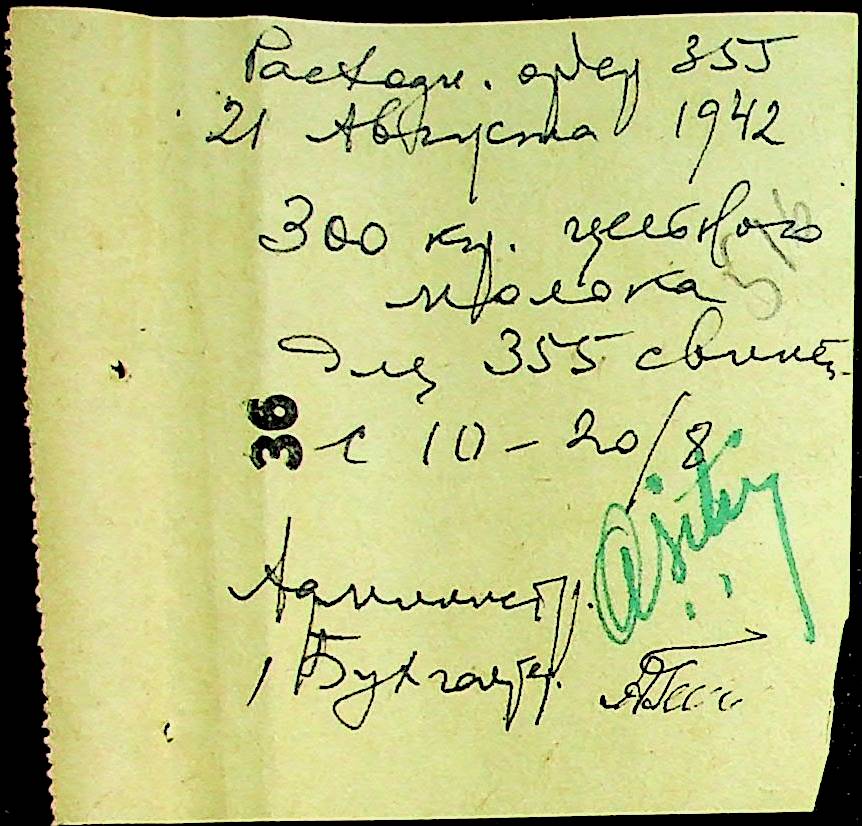 Расходн. ордер 355
21 Августа 1942
300 кг. цельного
молока
Для 355 свиней
36
с 10-20/8
Администр.
Бухгалтер.